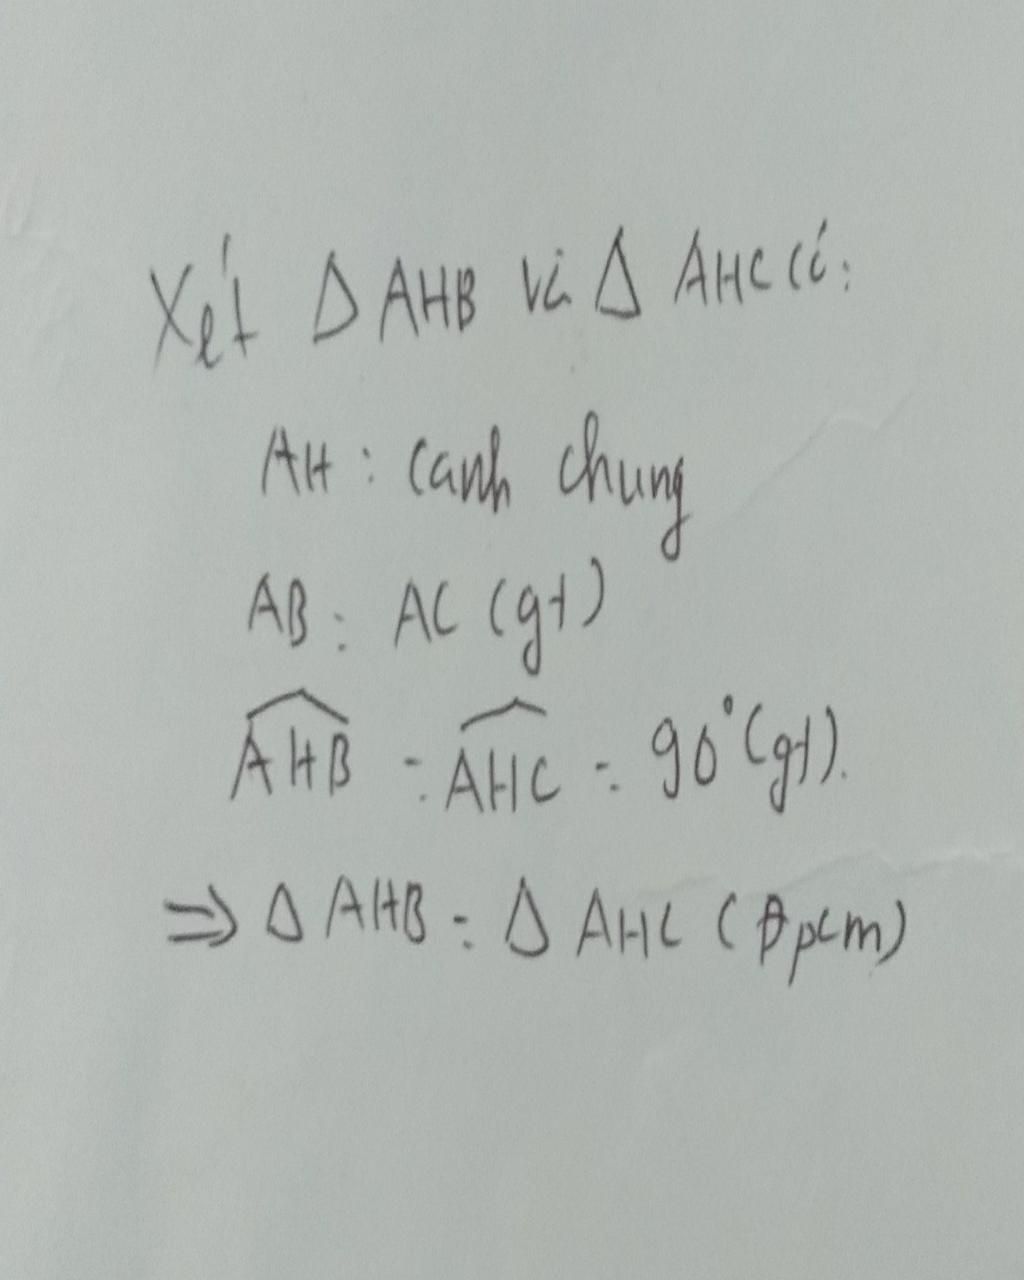 Xét Δ AHB và Δ AHC có:
AH : cạnh chung
AB = AC (gt)
$\widehat{AHB}$ = $\widehat{AHC}$ = 90° (gt).
⇒ Δ AHB = Δ AHC (Đpcm)